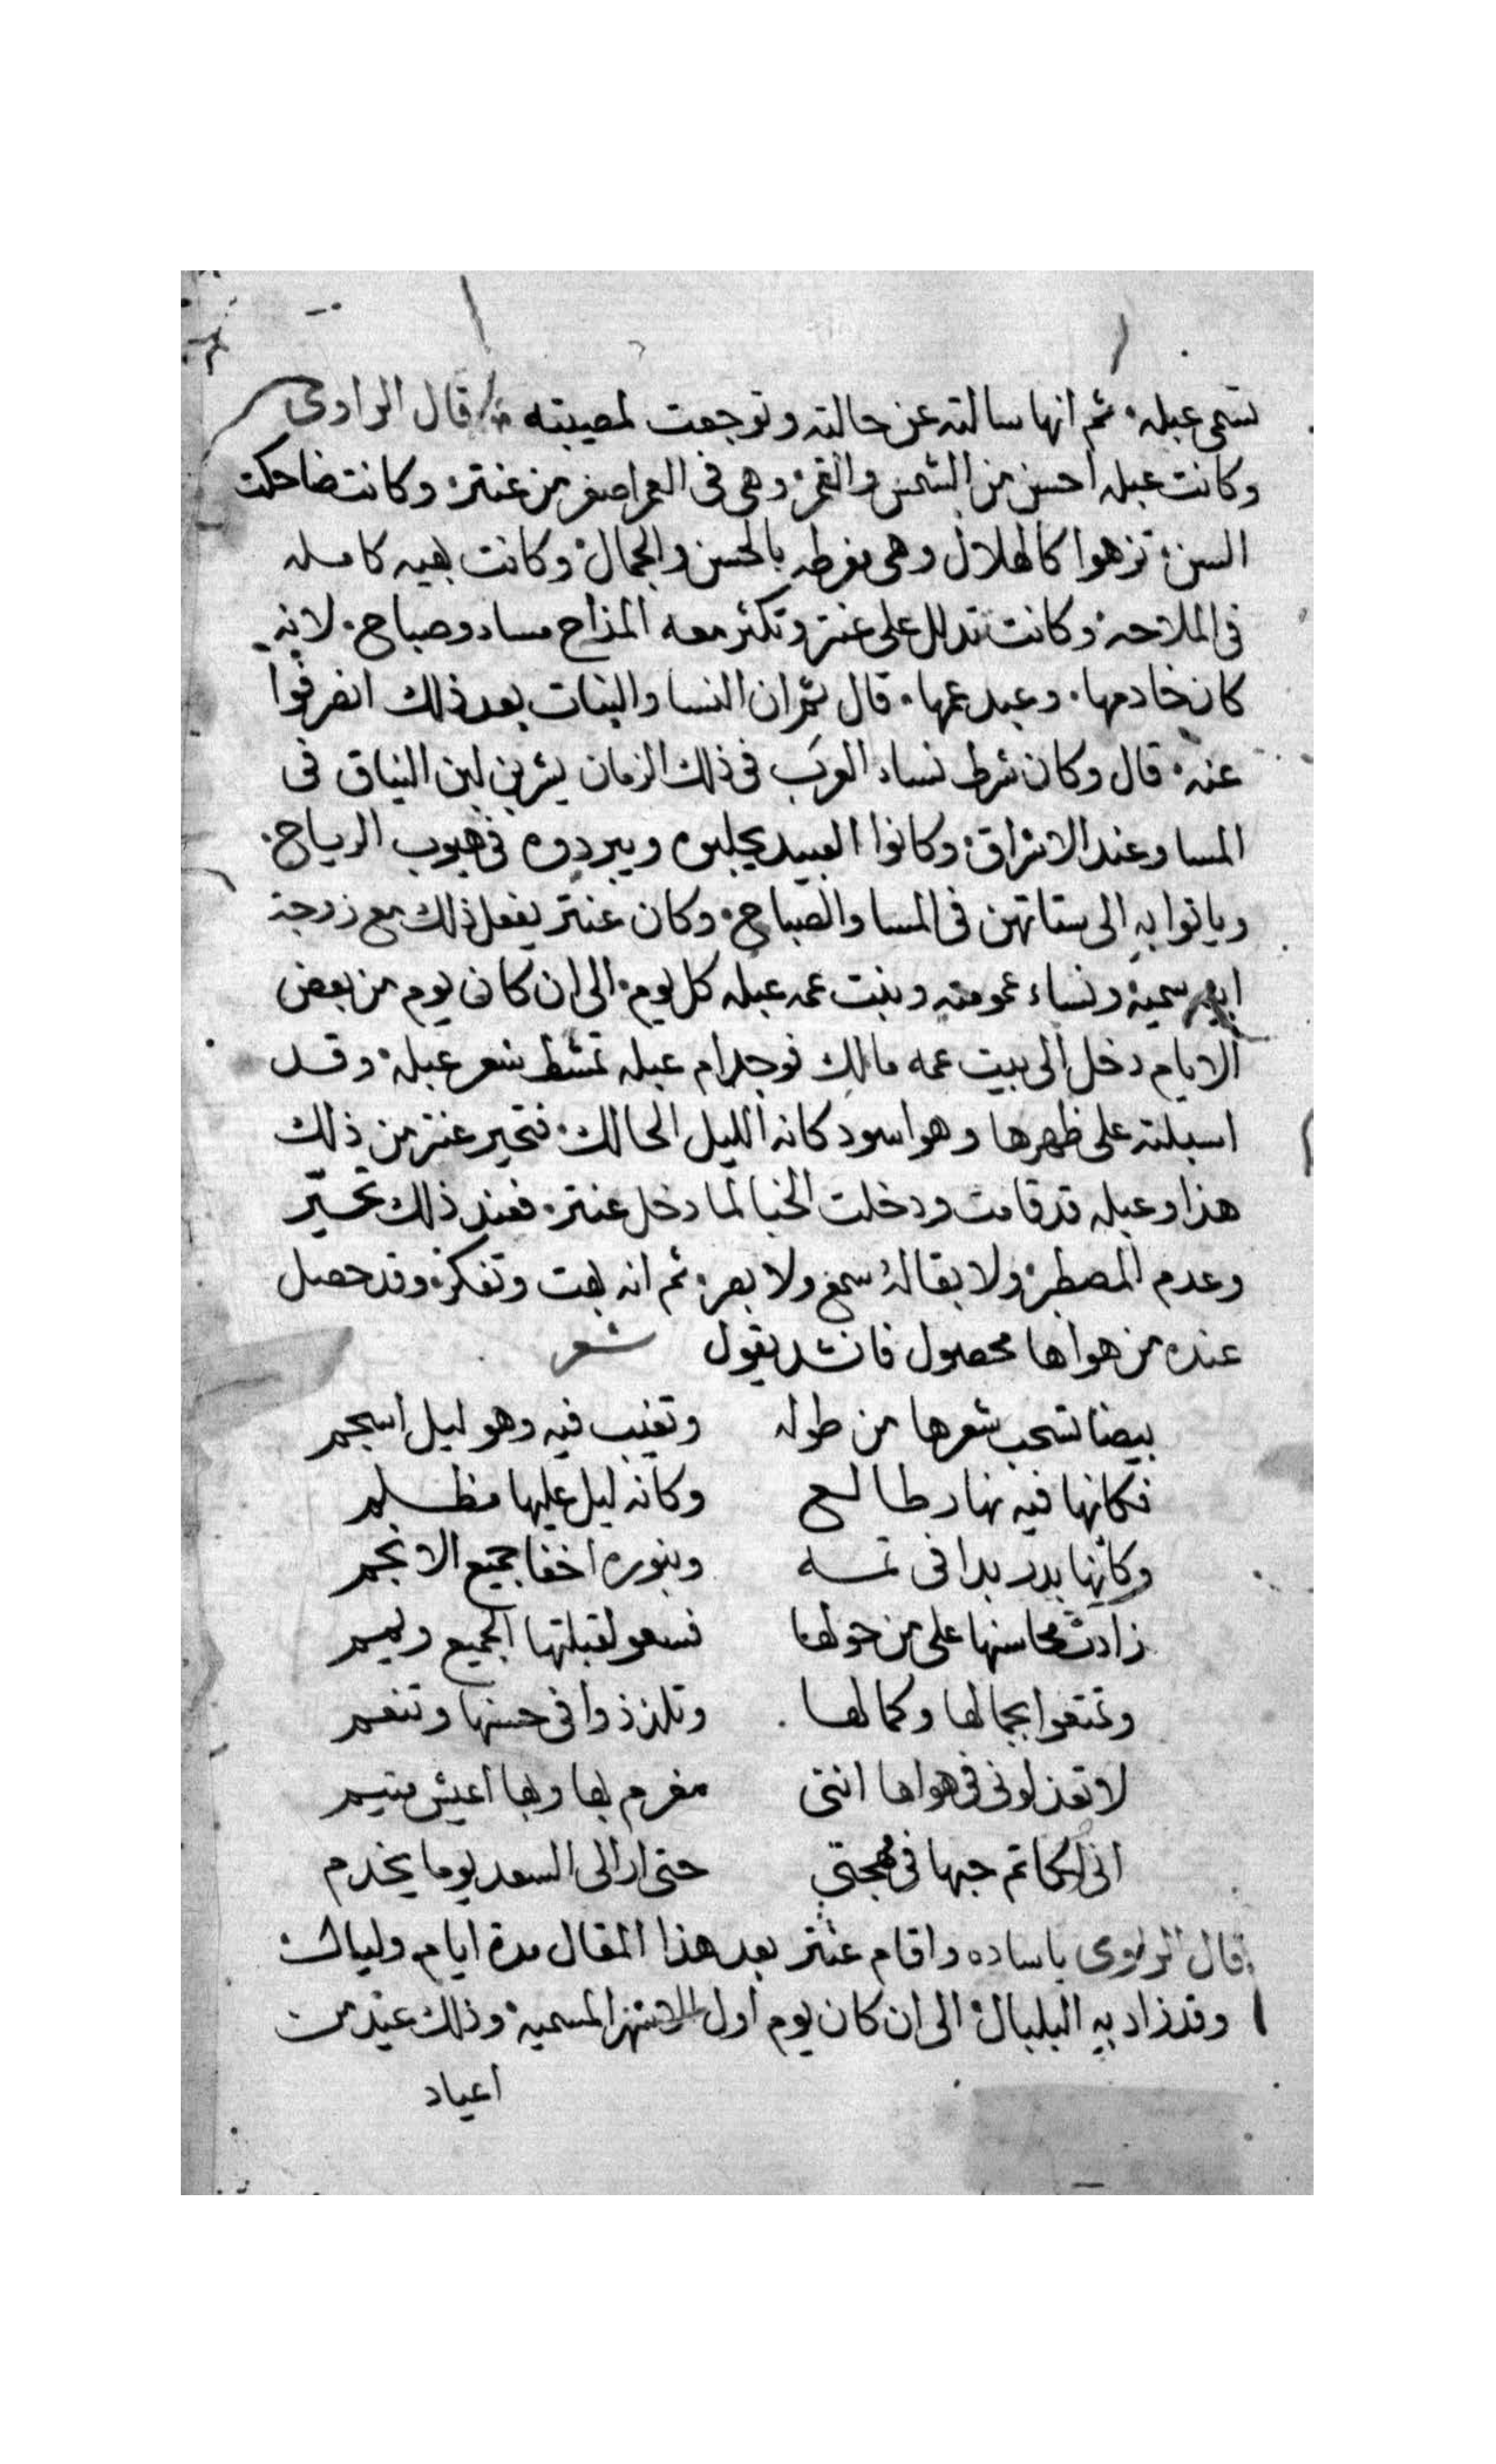 تسمى عبله ثم انها سالته عن حالته وتوجعت لمصيبته قال الراوى
وكانت عبله احسن من الشمس والقمر وهى فى العمر اصغر من عنتر وكانت ضاحكت
السن تزهوا كالهلال وهى مفرطه بالحسن والجمال وكانت بهيه كامله
فى الملاحه وكانت تدلل على عنتر وتكثر معه المزاح مساء وصباح لانه
كان خادمها وعبد عمها قال ثم ان النسا والبنات بعد ذلك انصرفوا
عنه قال وكان شرط نساء العرب فى ذلك الزمان يشربن لبن النياق فى
المسا وعند الاشراق وكانوا العبيد يحلبوه ويبردوه فى هبوب الرياح
وياتوا به الى ستاتهن فى المسا والصباح وكان عنتر يفعل ذلك مع زوجة
ابيه سميه ونساء عمومته وبنت عمه عبله كل يوم الى ان كان يوم من بعض
الايام دخل الى بيت عمه مالك فوجد ام عبله تمشط شعر عبله وقد
اسبلته على ظهرها وهو اسود كانه الليل الحالك فتحير عنتر من ذلك
هذا وعبله قد قامت ودخلت الخبا لما دخل عنتر فعند ذلك تحير
وعدم المصطبر ولا بقا له سمع ولا بصر ثم انه بهت وتفكر وقد حصل
عنده من هواها محصول فانشد يقول شعر
بيضا تسحب شعرها من طوله وتغيب فيه وهو ليل اسجم
فكانها فيه نهار طالع وكانه ليل عليها مظلم
وكانها بدر بدا فى تمه وبنوره اخفا جميع الانجم
زادت محاسنها على من حولها فسعو لقبلتها الجميع ويمم
وتمتعوا بجمالها وكمالها وتلذذوا فى حسنها وتنعم
لا تعذلونى فى هواها اننى مغرم بها وبها اعيش متيم
انى لكاتم حبها فى مهجتي حتى ارا لى السعد يوما يخدم
قال الراوى ياساده واقام عنتر بعد هذا المقال مدة ايام وليال
وقد زاد به البلبال الى ان كان يوم اول الاشهر المسميه وذلك عيد من
اعياد